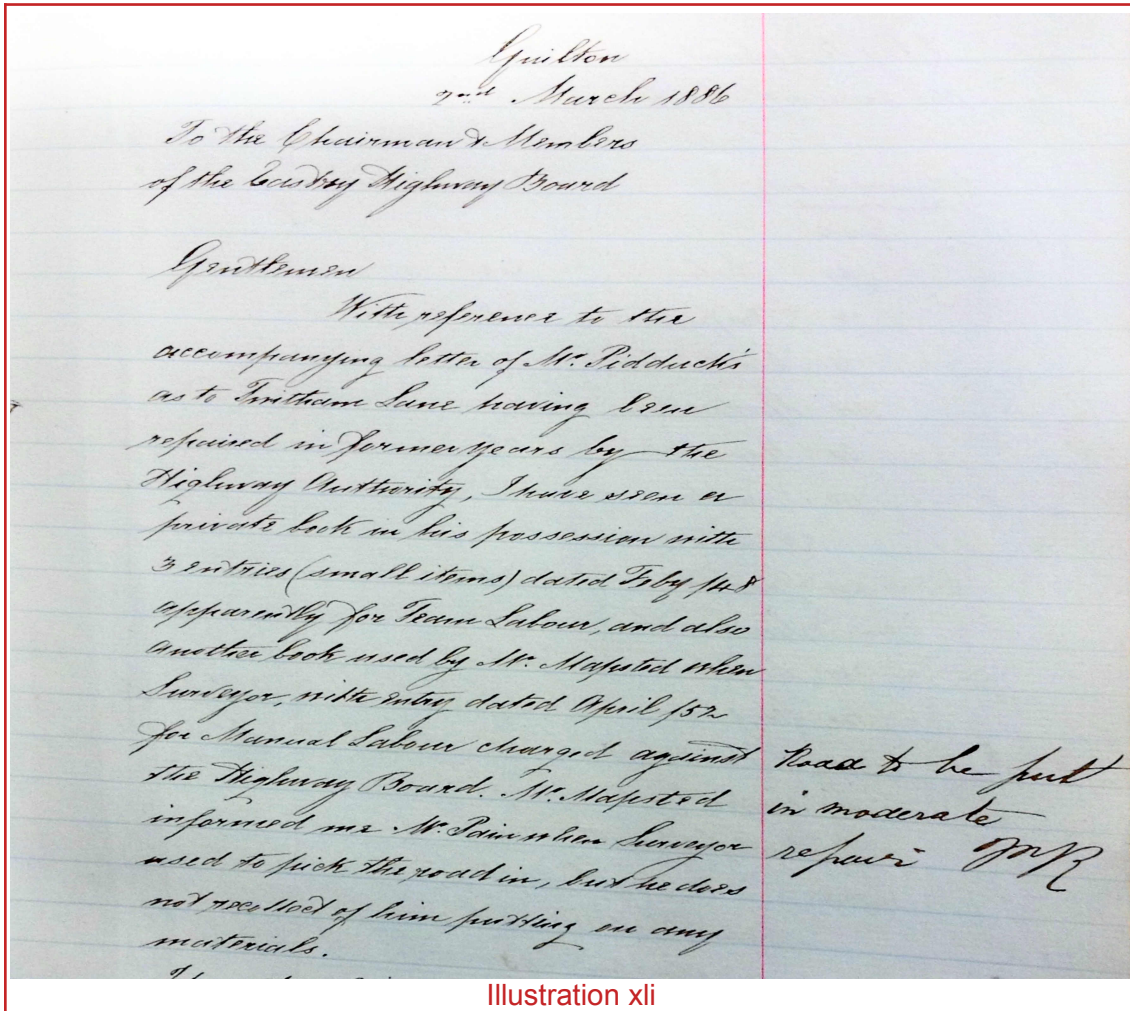 Guilton
2nd March 1886
To the Chairman & Members
of the Eastry Highway Board
Gentlemen
With reference to the
accompanying letter of Mr. Pidduck's
as to Twitham Lane having been
repaired in former years by the
Highway Authority, I have seen a
private book in his possession with
3 entries (small items) dated Feby /48
apparently for Team Labour, and also
another book used by Mr. Maxsted when
Surveyor, with entry dated April /52
for Manual Labour charged against
the Highway Board. Mr. Maxsted
informed me Mr. Pain when Surveyor
used to pick the road in, but he does
not recollect of him putting on any
materials.
Road to be put
in moderate
repair
Illustration xli